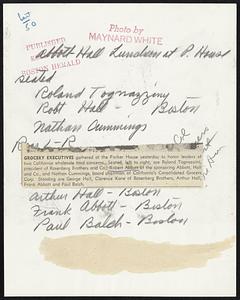 Photo by
MAYNARD WHITE
PUBLISHED
BOSTON HERALD
Abbott Hall Luncheon at P. House
seated
Roland Tognazzini
Robt Hall - Boston
Nathan Cummings
GROCERY EXECUTIVES gathered at the Parker House yesterday to honor leaders of
two California wholesale food concerns. Seated, left to right, are Roland Tognazzini,
president of Rosenberg Brothers and Co.; Robert Abbott of the sponsoring Abbott, Hall
and Co., and Nathan Cummings, board chairman of California's Consolidated Grocers
Corp. Standing are George Hall, Clarence Kane of Rosenberg Brothers, Arthur Hall,
Frank Abbott and Paul Balch.
Arthur Hall - Boston
Frank Abbott - Boston
Paul Balch - Boston